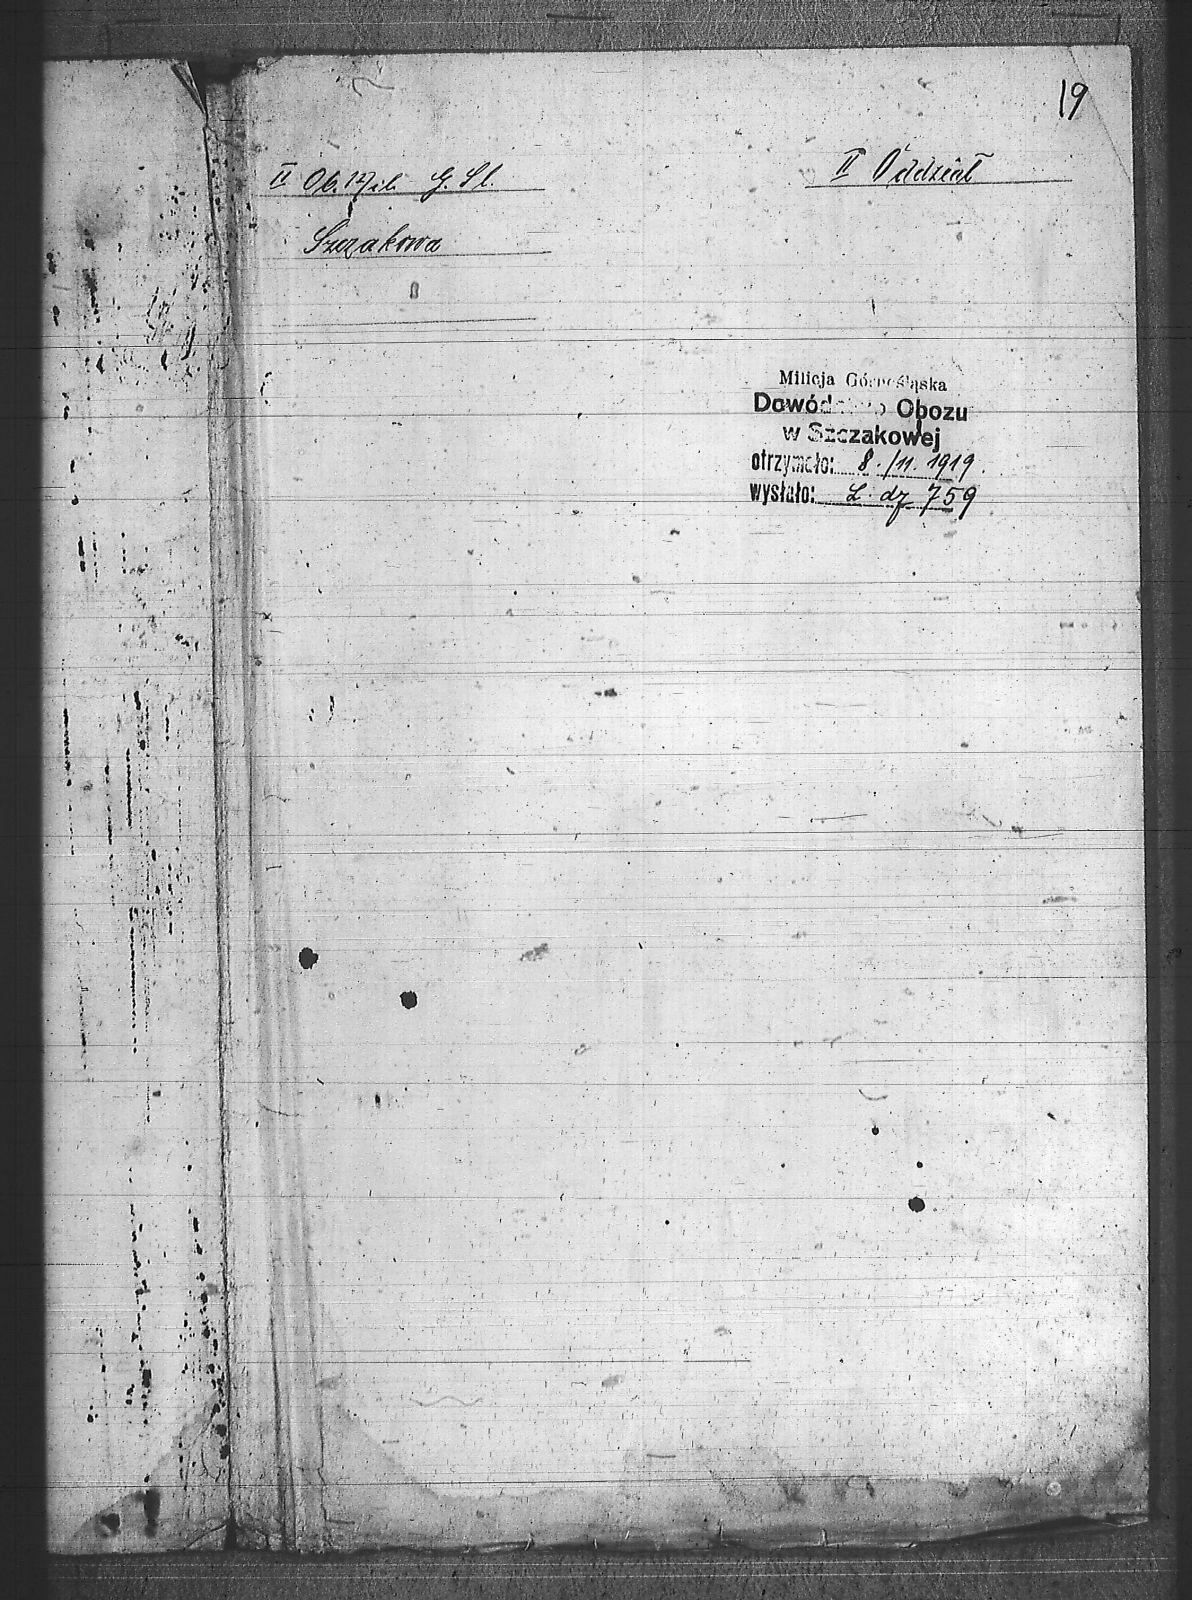 19
II Ob. G. Sl.
II Oddział
Szczakowa
Milicja Górnośląska
Dowództwo Obozu
w Szczakowej
otrzymało: 8./11. 1919.
wysłało: L. dz 759